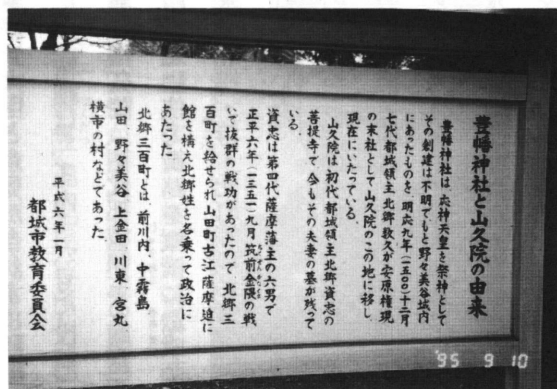 豊幡神社と山久院の由来
豊幡神社は、応神天皇を祭神として
その創建は不明でもと野々美谷城内
にあったものを、明応九年(一五〇〇)十二月
七代都城領主北郷敦久が安原権現
の末社として山久院のこの地に移し
現在にいたっている。
山久院は初代都城領主北郷資忠の
菩提寺で、今もその夫妻の墓が残って
いる。
資忠は第四代薩摩藩主の六男で
正平六年(一三五一)九月筑前金隈の戦
いで抜群の戦功があったので、北郷三
百町を給せられ山田町古江薩摩迫に
館を構え北郷姓を名乗って政治に
あたった。
北郷三百町とは、前川内、中霧島
山田、野々美谷、上金田、川東、宮丸
横市の村などであった。
平成六年一月
都城市教育委員会
'95 9 10